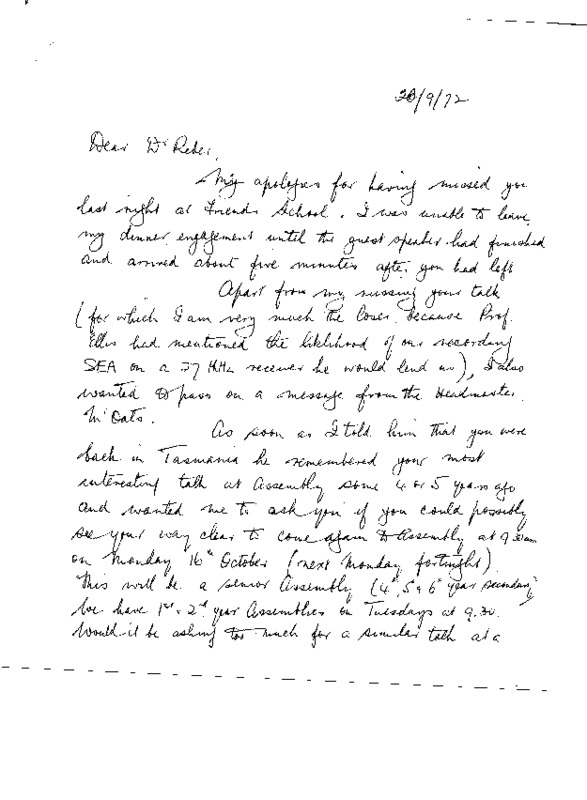 28/9/72
Dear Dr Reber,
My apologies for having missed you
last night at Friends School. I was unable to leave
my dinner engagement until the guest speaker had finished
and arrived about five minutes after you had left
Apart from my missing your talk
(for which I am very much the loser because Prof.
Ellis had mentioned the liklihood of our recording
SEA on a 27 MHz receiver he would lend us), I also
wanted to pass on a message from the Headmaster
Mr Oats.
As soon as I told him that you were
back in Tasmania he remembered your most
interesting talk at Assembly some 4 or 5 years ago
and wanted me to ask you if you could possibly
see your way clear to come again to Assembly at 9
on Monday 16th October (next Monday fortnight)
This will be a senior Assembly (4th, 5th & 6th year secondary)
We have 1st & 2nd year Assemblies on Tuesdays at 9.30.
Would it be asking too much for a similar talk at a